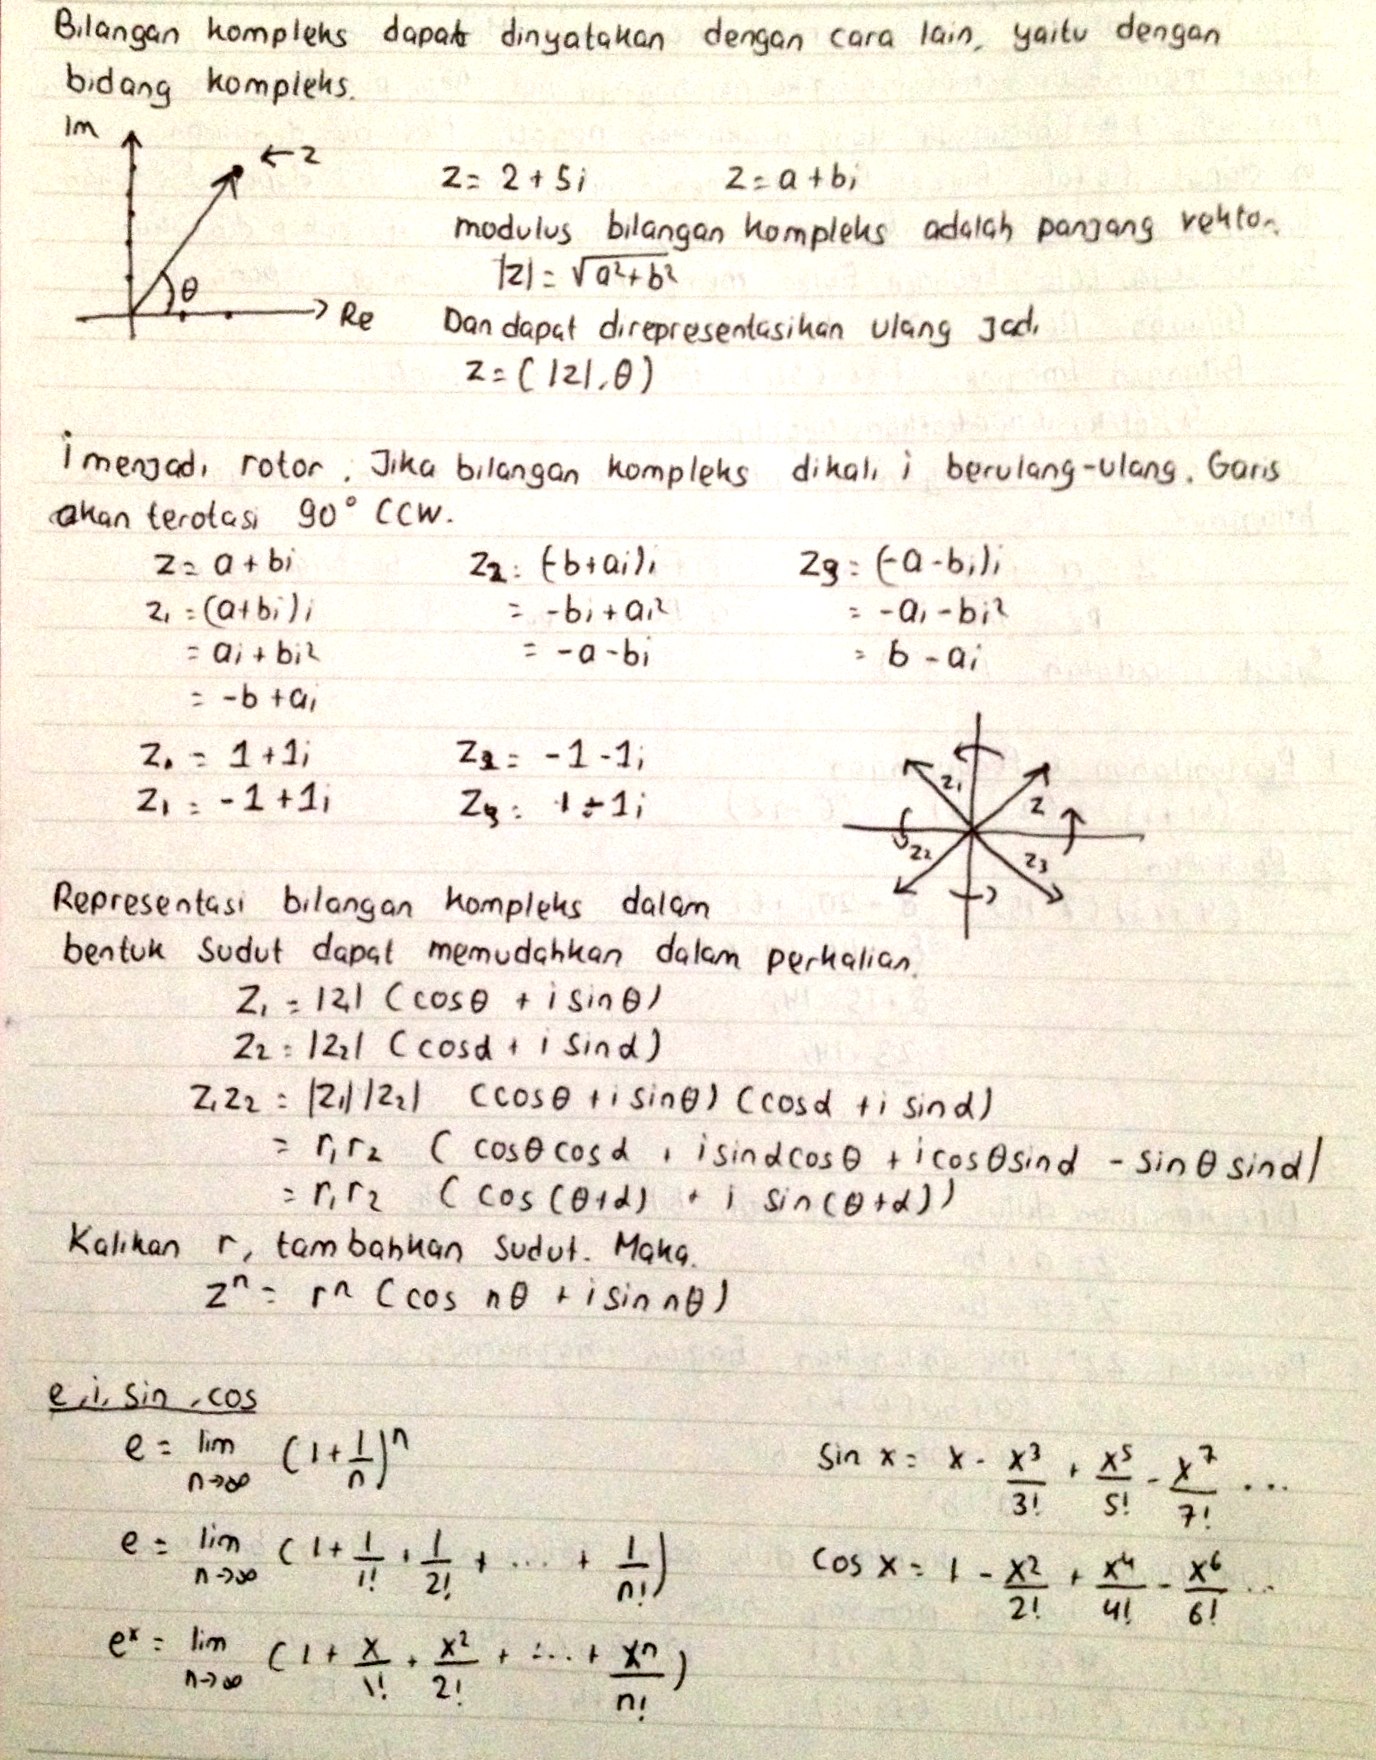 Bilangan kompleks dapat dinyatakan dengan cara lain, yaitu dengan
bidang kompleks.
Im
← z
θ
Re
z = 2 + 5i z = a + bi
modulus bilangan kompleks adalah panjang vektor.
|z| = √(a² + b²)
Dan dapat direpresentasikan ulang jadi
z = (|z|, θ)
i menjadi rotor. Jika bilangan kompleks dikali i berulang-ulang. Garis
akan terotasi 90° CCW.
z = a + bi z₂ = (-b+ai)i z₃ = (-a-bi)i
z₁ = (a+bi)i = -bi + ai² = -ai - bi²
= ai + bi² = -a - bi = b - ai
= -b + ai
z₀ = 1 + 1i z₂ = -1 - 1i
z₁ = -1 + 1i z₃ = 1 - 1i
z₁ z
z₂ z₃
Representasi bilangan kompleks dalam
bentuk sudut dapat memudahkan dalam perkalian.
z₁ = |z₁| (cosθ + i sinθ)
z₂ = |z₂| (cosα + i sinα)
z₁z₂ = |z₁| |z₂| (cosθ + i sinθ) (cosα + i sinα)
= r₁r₂ (cosθ cosα + i sinα cosθ + i cosθ sinα - sinθ sinα)
= r₁r₂ (cos(θ+α) + i sin(θ+α))
Kalikan r, tambahkan sudut. Maka.
zⁿ = rⁿ (cos nθ + i sin nθ)
e, i, sin, cos
e = lim n→∞ (1 + 1/n)ⁿ sin x = x - x³/3! + x⁵/5! - x⁷/7! ...
e = lim n→∞ (1 + 1/1! + 1/2! + ... + 1/n!) cos x = 1 - x²/2! + x⁴/4! - x⁶/6! ...
eˣ = lim n→∞ (1 + x/1! + x²/2! + ... + xⁿ/n!)